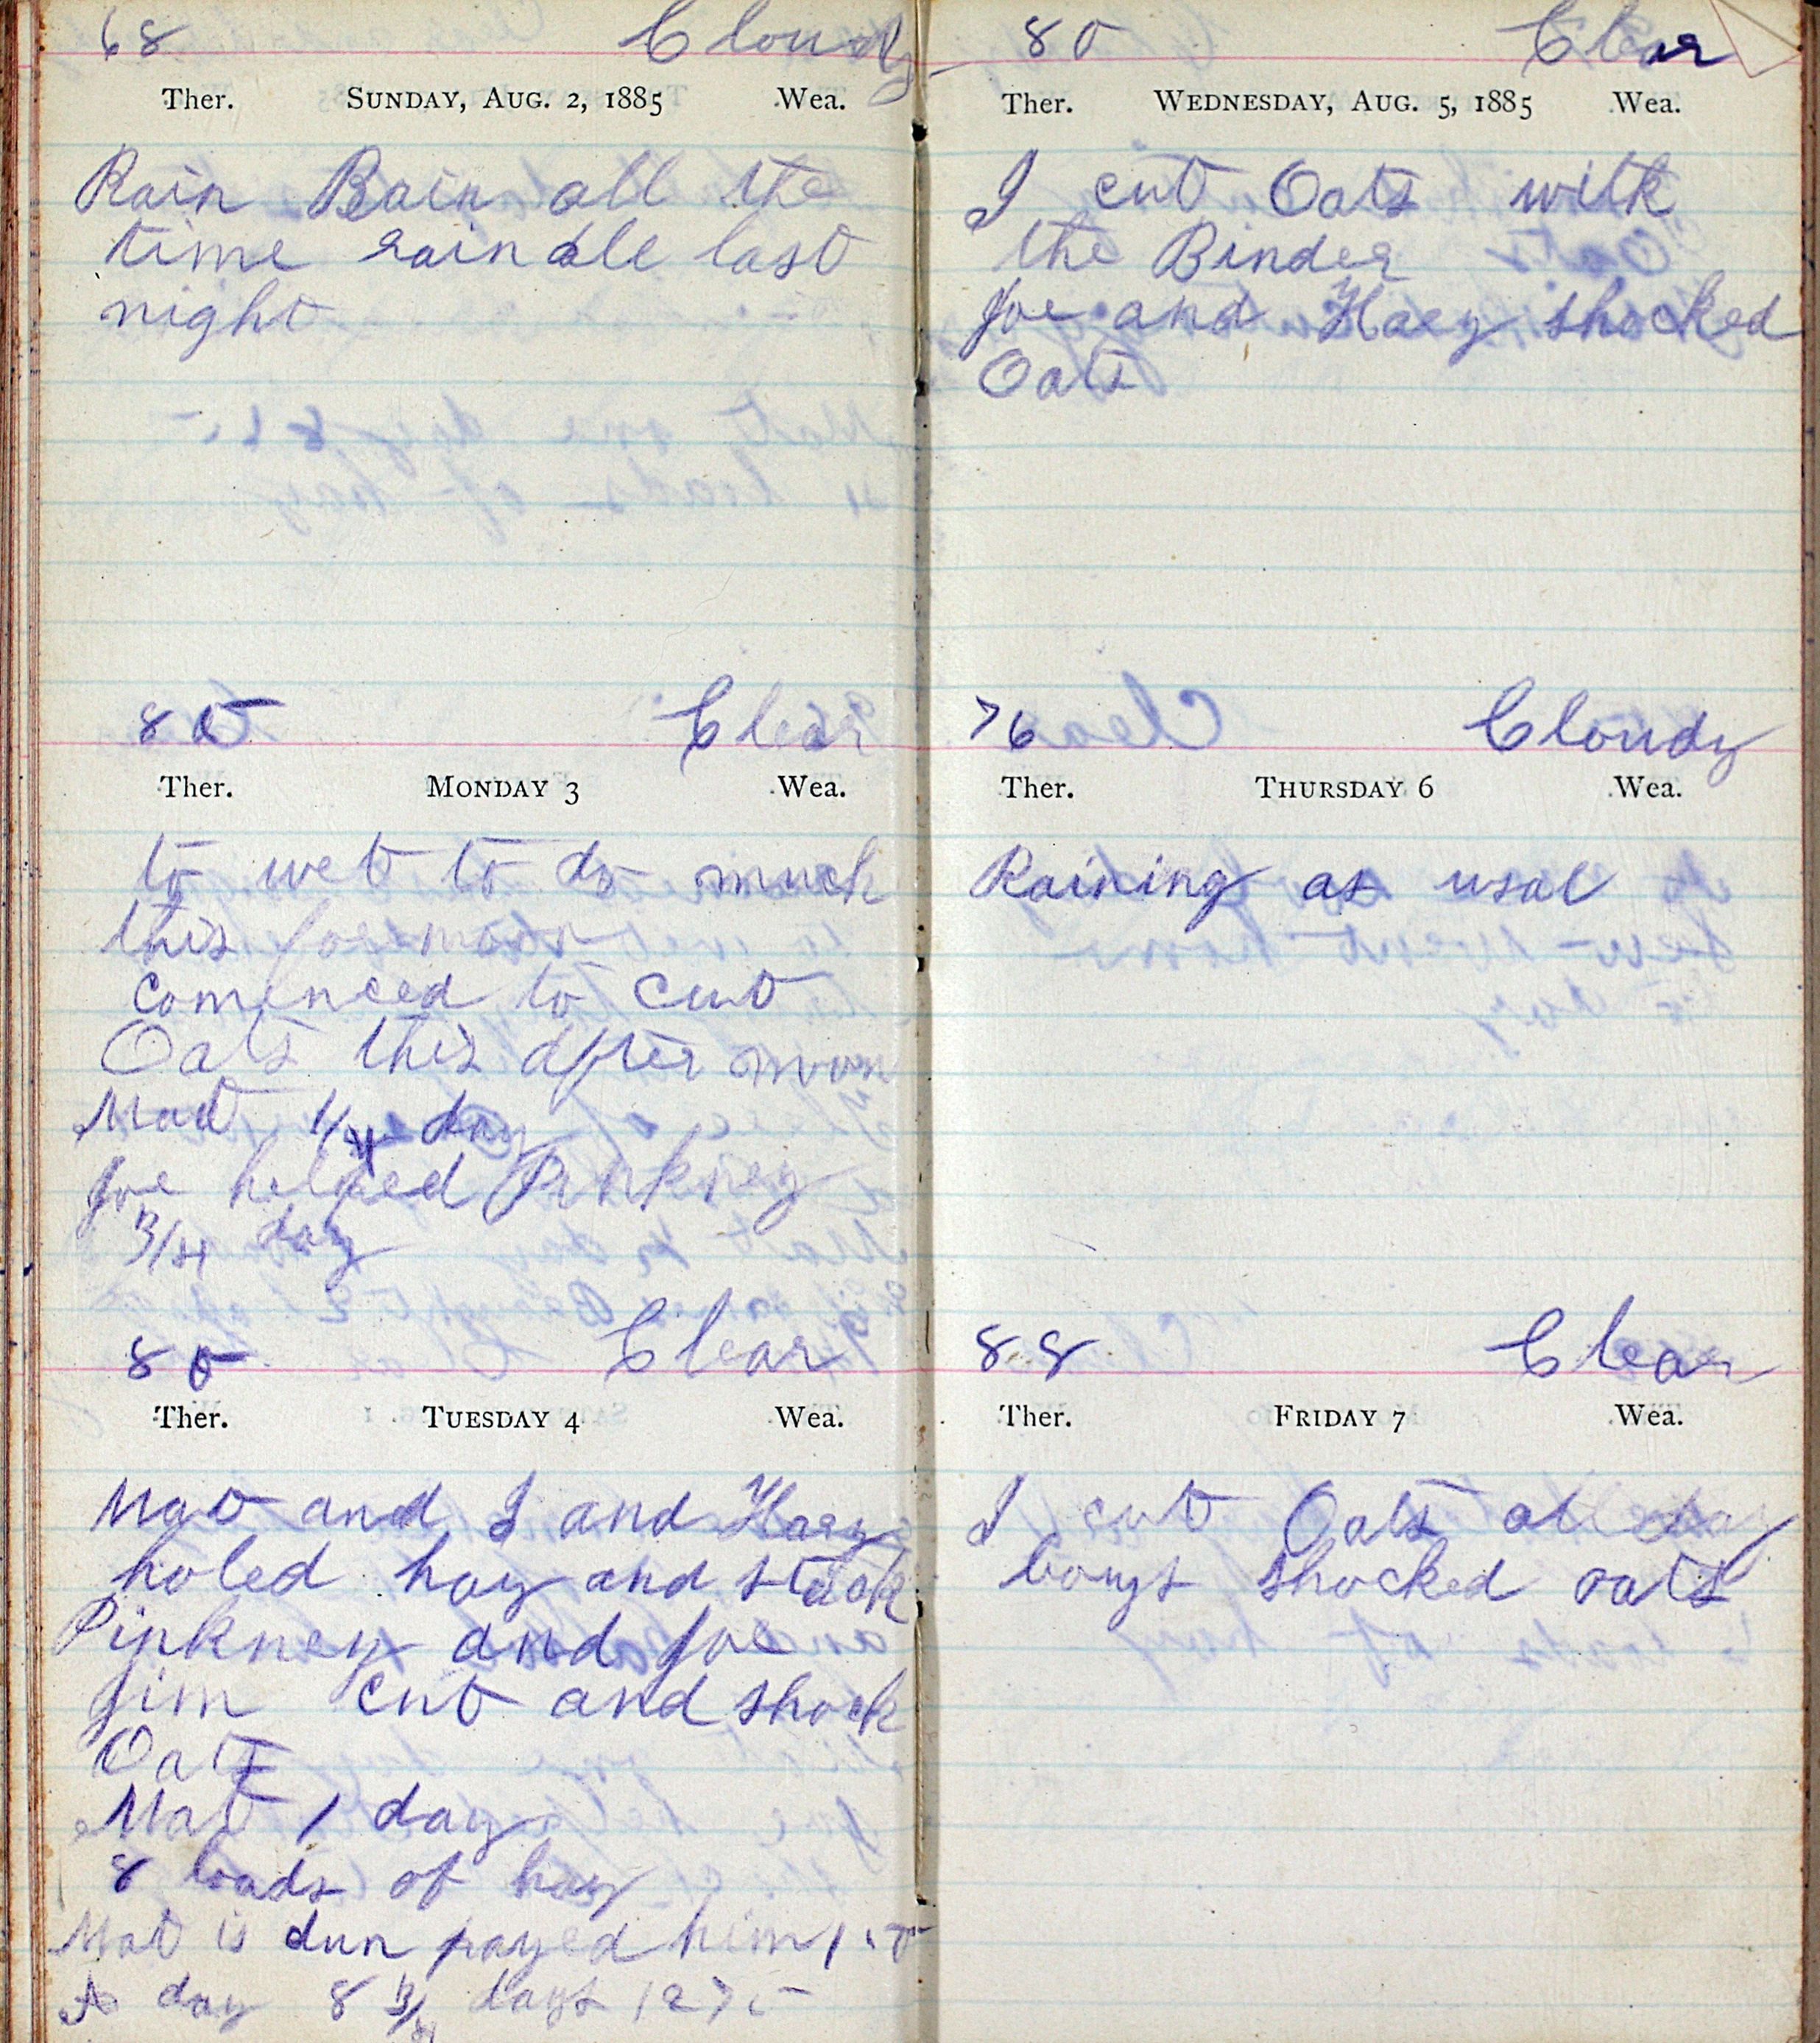 68 Cloudy
Ther. SUNDAY, AUG. 2, 1885 Wea.
Rain Rain all the
time rain all last
night
85 Clear
Ther. MONDAY 3 Wea.
to wet to do much
this foernoon
comenced to cut
Oats this after noon
Mat 1/4 day
Joe helped Pinkney
3/4 day
80 Clear
Ther. TUESDAY 4 Wea.
Mat and I and Harg
holed hay and stack
Pinkney and Joe
Jim cut and shock
Oats
Mat 1 day
8 loads of hay
Mat is dun payed him 1.50
A day 8 3/4 days 1275
80 Clear
Ther. WEDNESDAY, AUG. 5, 1885 Wea.
I cut Oats with
the Binder
Joe and Harg shocked
Oats
76 Cloudy
Ther. THURSDAY 6 Wea.
Raining as usal
88 Clear
Ther. FRIDAY 7 Wea.
I cut Oats all day
boays shocked oats